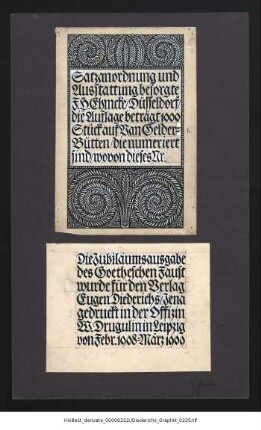 Satzanordnung und
Ausstattung besorgte
F.H. Ehmcke/Düsseldorf/
die Auflage beträgt 1000
Stück auf Van Gelder-
Bütten/die numeriert
sind/wovon dieses Nr.
Die Jubiläumsausgabe
des Goetheschen Faust
wurde für den Verlag
Eugen Diederichs/Jena
gedruckt in der Offizin
W. Drugulin in Leipzig
von Febr. 1908-März 1909
HisBest_derivate_00008222/Diederichs_Graphik_0225.tif